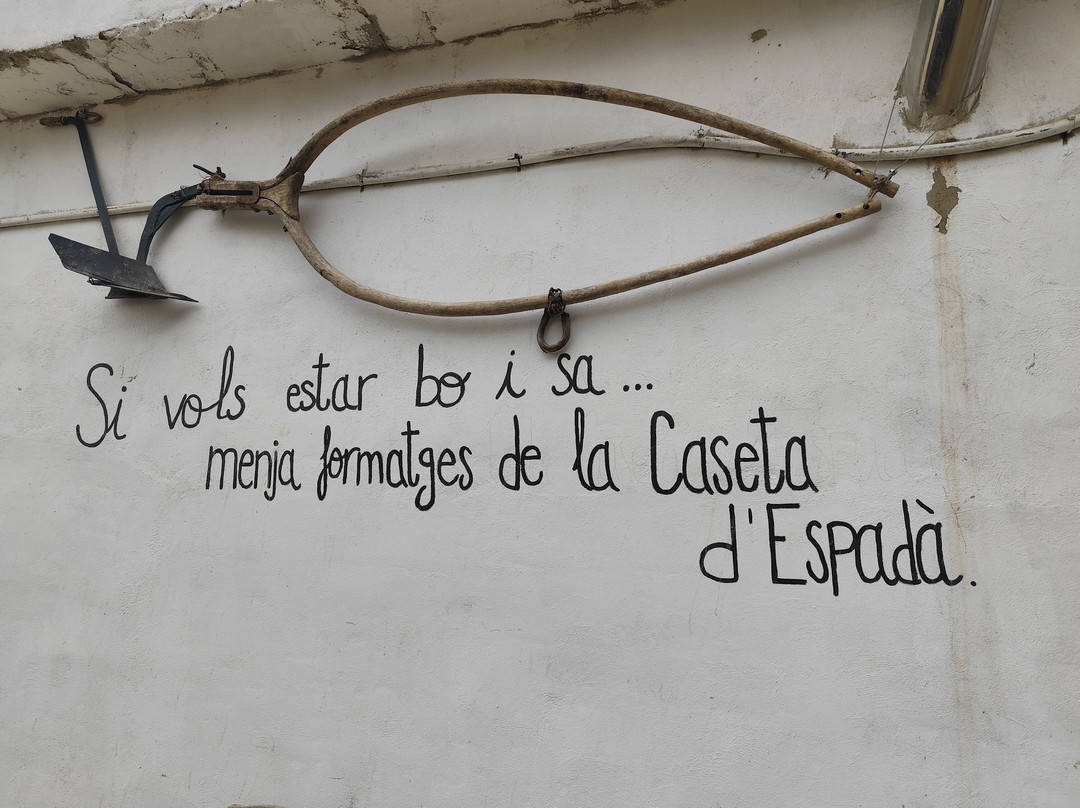 Si vols estar bo i sa...
menja formatges de la Caseta
d'Espadà.